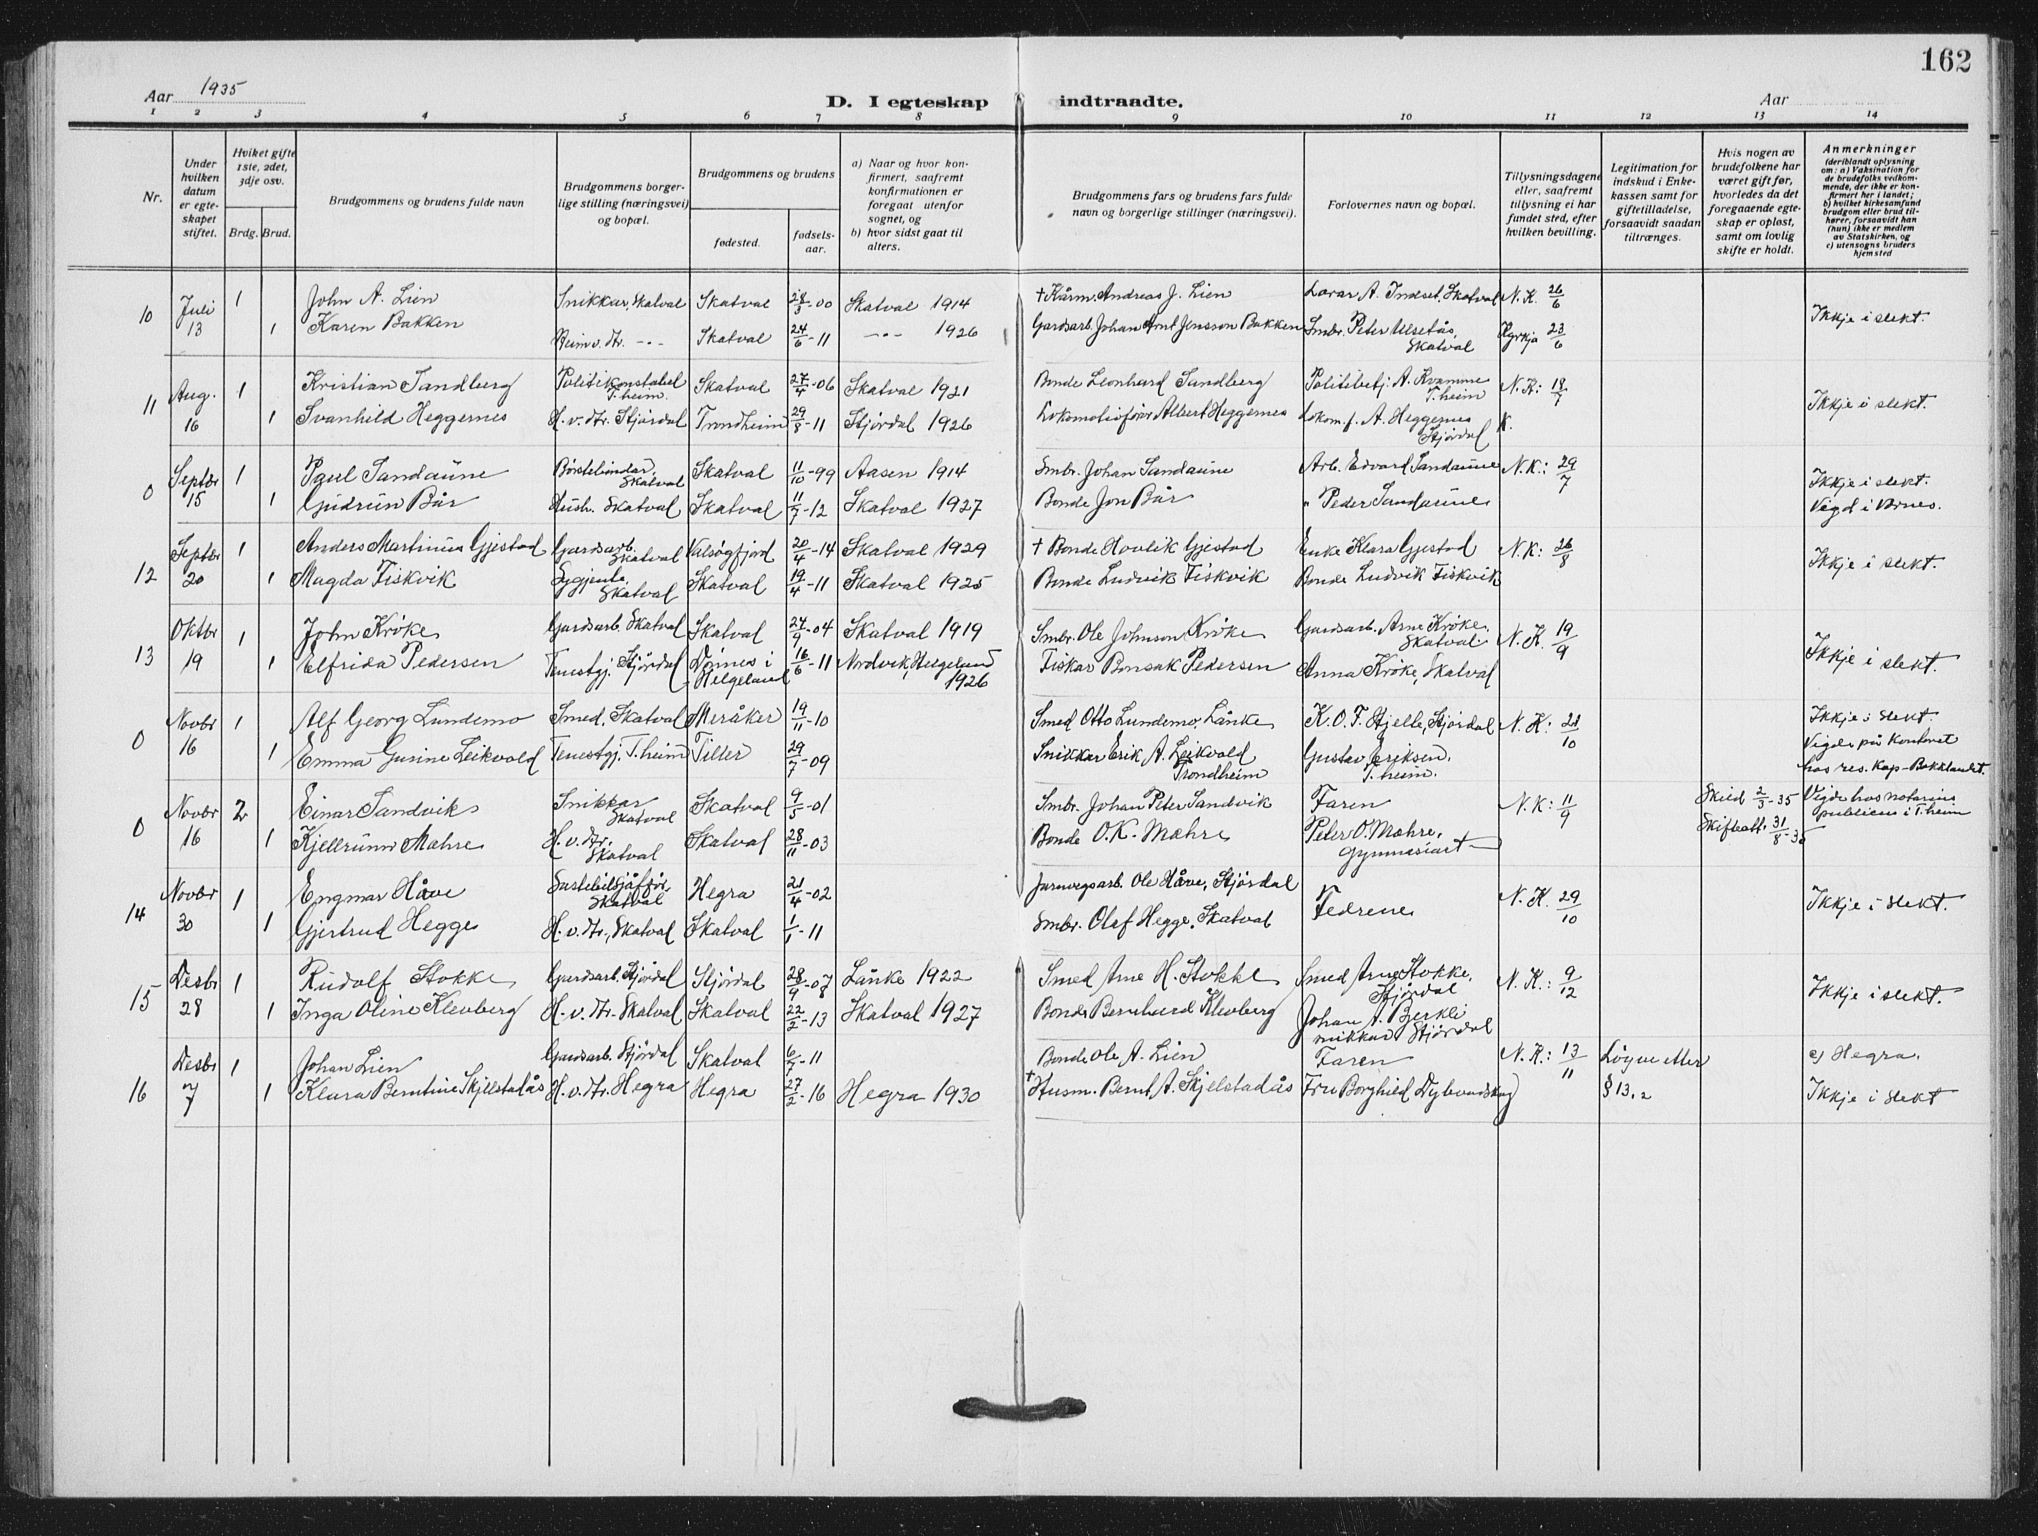 162
Aar 1935
D. I egteskap indtraadte.
Aar
1 2 3 4 5 6 7 8 9 10 11 12 13 14
Nr.
Under hvilken datum er egteskapet stiftet.
Hviket gifte 1ste, 2det, 3dje osv.
Brdg. Brud.
Brudgommens og brudens fulde navn
Brudgommens borgerlige stilling (næringsvei) og bopæl.
Brudgommens og brudens
fødested.
fødsels-aar.
a) Naar og hvor konfirmert, saafremt konfirmationen er foregaat utenfor sognet, og
b) hvor sidst gaat til alters.
Brudgommens fars og brudens fars fulde navn og borgerlige stillinger (næringsvei).
Forlovernes navn og bopæl.
Tillysningsdagene eller, saafremt tillysning ei har fundet sted, efter hvilken bevilling.
Legitimation for indskud i Enkekassen samt for giftetilladelse, forsaavidt saadan tiltrænges.
Hvis nogen av brudefolkene har været gift før, hvorledes da det foregaaende egteskap er opløst, samt om lovlig skifte er holdt.
Anmerkninger
(deriblandt oplysning om: a) Vaksination for de brudefolks vedkommende, der ikke er konfirmert her i landet;
b) hvilket kirkesamfund brudgom eller brud tilhører, forsaavidt han (hun) ikke er medlem av Statskirken, og
c) utensogns bruders hjemsted
10 Juli 13 1 John A. Lien Snikkar, Skatval Skatval 28/3-00 Skatval 1914 + Kårm. Andreas J. Lien Lavar A. Indset, Skatval N. K. 26/6
1 Karen Bakken Heim v. Str. -"- Skatval 24/6-11 -"- 1926 Gardsarb. Johan Arnt Jensson Bakken Smbr. Peter Ulsetås, Skatval 23/6 Ikkje i slekt.
11 Aug. 16 1 Kristian Sandberg Politikonstabel T.heim. Skatval 27/4-06 Skatval 1921 Bonde Leonhard Sandberg Politibetj. A. Kvamme T.heim N. K: 18/7
1 Svanhild Heggernes H. v. Str. Stjørdal Trondheim 29/8-11 Stjørdal 1926 Lokomotivfører Albert Heggernes Lokom.f. A. Heggernes Stjørdal K. Ikkje i slekt.
0 Septbr 15 1 Paul Sandaune Børstebindar, Skatval Skatval 11/10-99 Aasen 1914 Smbr. Johan Sandaune Arb. Edvard Sandaune N. K: 29/7 Ikkje i slekt.
1 Gudrun Bår Hush. Skatval Skatval 11/7-12 Skatval 1927 Bonde Jon Bår " Peder Sandaune Vigd i Ørnes.
12 Septbr 20 1 Anders Martinus Gjestad Gardsarb. Skatval Valsøgfjord 20/4-14 Skatval 1929 + Bonde Hovlik Gjestad Enke Klara Gjestad N. K: 26/8
1 Magda Fiskvik Sygjente, Skatval Skatval 19/4-11 Skatval 1925 Bonde Ludvik Fiskvik Bonde Ludvik Fiskvik Ikkje i slekt.
13 Oktbr 19 1 John Krøke Gardsarb. Skatval Skatval 24/9-04 Skatval 1919 Smbr. Ole Johnson Krøke Gardsarb. Arne Krøke, Skatval N. K. 19/9
1 Elfrida Pedersen Tenestgj. Stjørdal Dønnes i Helgeland 16/6-11 Nordvik, Helgeland 1926 Fiskar Bonsak Pedersen Anna Krøke, Skatval Ikkje i slekt.
0 Novbr 16 1 Alf Georg Lundemo Smed, Skatval Meråker 19/11-10 Smed Otto Lundemo, Lånke K. O. F. Hjelle, Stjørdal N. K: 21/10 Ikkje i slekt.
1 Emma Gurine Leikvold Tenestgj. T.heim Tiller 29/7-09 Snikkar Erik A. Leikvold Trondheim Gustav Eriksen, T.heim. Vigde på kontoret hos res. kap. Bakklandet.
0 Novbr 16 2 Einar Sandvik Snikkar Skatval Skatval 9/5-01 Smbr. Johan Peter Sandvik Faren N. K: 11/9 Skild 2/3-35 Vigde hos notarius publicus i T.heim
1 Kjellrunn Mæhre H. v. Str. Skatval Skatval 28/11-03 Bonde O. K. Mæhre Peter O. Mæhre, gymnasiast Skifteatt. 31/8-35
14 Novbr 30 1 Engmar Håve Lastebilsjåfør, Skatval Hegra 21/4-02 Jarnvegsarb. Ole Håve, Stjørdal Fedrene N. K. 29/10 Ikkje i slekt.
1 Gjertrud Hegge H. v. Str., Skatval Skatval 1/1-11 Smbr. Olaf Hegge, Skatval
15 Desbr 28 1 Rudolf Stokke Gardsarb. Stjørdal Stjørdal 28/9-07 Lånke 1922 Smed Arne H. Stokke Smed Arne Stokke, Stjørdal N. K.: 9/12
1 Inga Oline Klevberg H. v. Str. Skatval Skatval 22/2-13 Skatval 1927 Bonde Bernhard Klevberg Johan A. Bjerkli snikkar Stjørdal Ikkje i slekt.
16 Desbr 7 1 Johan Lien Gardsarb. Stjørdal Skatval 6/7-11 Bonde Ole A. Lien Faren N. K.: 13/11 Løyve etter c) Hegra.
1 Klara Berntine Skjelstadås H. v. Str. Hegra Hegra 27/2-16 Hegra 1930 + Husm. Bernt A. Skjelstadås Fru Borghild Dybvadskog § 13,2 Ikkje i slekt